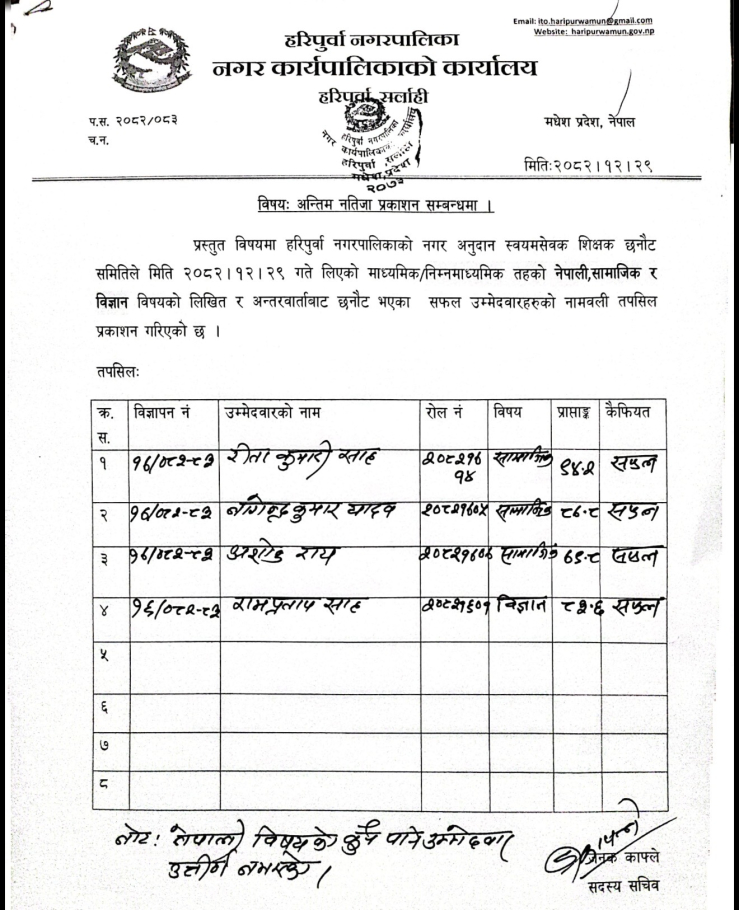 Email: ito.haripurwamun@gmail.com
Website: haripurwamun.gov.np
हरिपुर्वा नगरपालिका
नगर कार्यपालिकाको कार्यालय
हरिपुर्वा, सर्लाही
हरिपुर्वा नगरपालिका
नगर कार्यपालिकाको कार्यालय
हरिपुर्वा, सर्लाही
मधेश प्रदेश
२०७३
प.स. २०८२/०८३
मधेश प्रदेश, नेपाल
च.न.
मितिः२०८२।१२।२९
विषयः अन्तिम नतिजा प्रकाशन सम्बन्धमा ।
प्रस्तुत विषयमा हरिपुर्वा नगरपालिकाको नगर अनुदान स्वयमसेवक शिक्षक छनौट
समितिले मिति २०८२।१२।२९ गते लिएको माध्यमिक/निम्नमाध्यमिक तहको नेपाली,सामाजिक र
विज्ञान विषयको लिखित र अन्तरवार्ताबाट छनौट भएका सफल उम्मेदवारहरुको नामवली तपसिल
प्रकाशन गरिएको छ ।
तपसिलः
क्र.स. विज्ञापन नं उम्मेदवारको नाम रोल नं विषय प्राप्ताङ्क कैफियत
१ १६/०८२-८३ रीता कुमारी साह २०८२१६१४ सामाजिक ९४.२ सफल
२ १६/०८२-८३ नगेन्द्र कुमार यादव २०८२१६०५ सामाजिक ८६.८ सफल
३ १६/०८२-८३ अशोक राय २०८२१६०६ सामाजिक ६९.८ सफल
४ १६/०८२-८३ रामप्रताप साह २०८२१६०१ विज्ञान ८३.६ सफल
५
६
७
८
नोट: नेपाली विषयको कुनै पनि उम्मेदवार
उत्तीर्ण नभएको ।
जनक काफ्ले
सदस्य सचिव